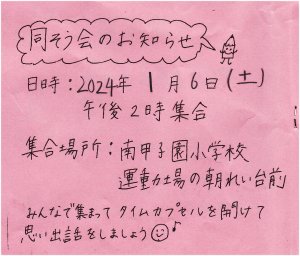 同そう会のお知らせ
日時：2024年 1月6日(土)
午後2時集合
集合場所：南甲子園小学校
運動場の朝れい台前
みんなで集まってタイムカプセルを開けて
思い出話をしましょう